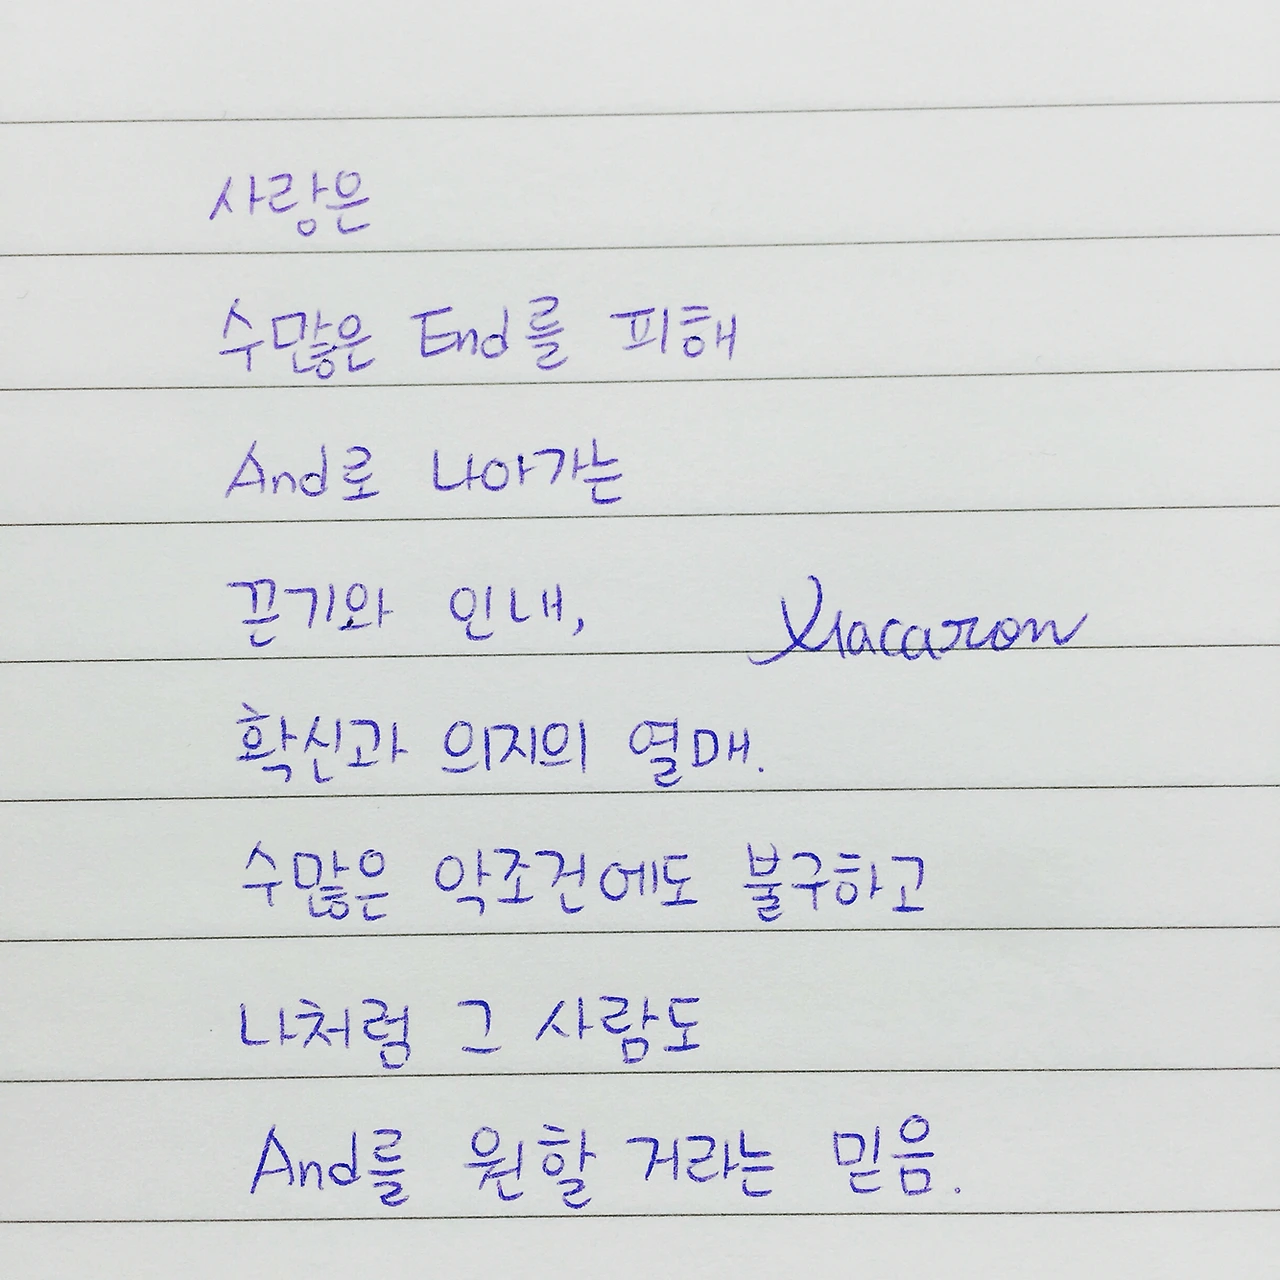 사랑은
수많은 End를 피해
And로 나아가는
끈기와 인내,
Macaron
확신과 의지의 열매.
수많은 악조건에도 불구하고
나처럼 그 사람도
And를 원할 거라는 믿음.